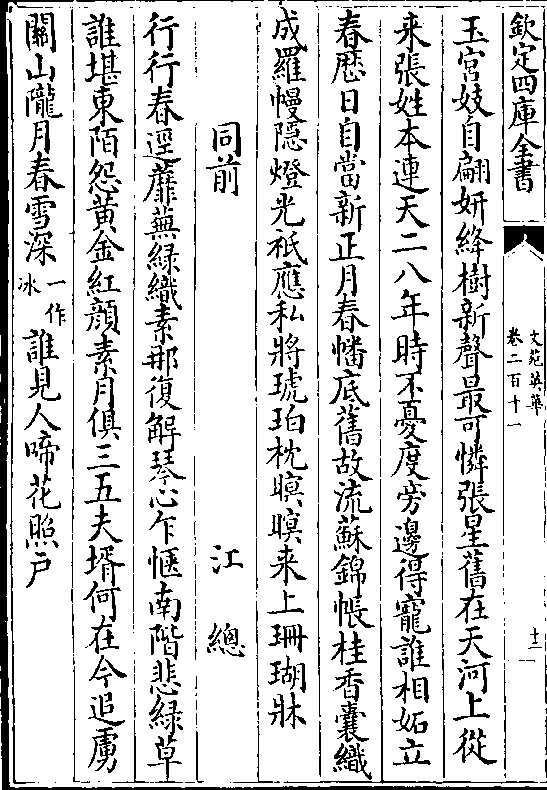 欽定四庫全書
文苑英華
卷二百十一
十二
玉宫妓自翩妍絳樹新聲最可憐張星舊在天河上從
来張姓本連天二八年時不憂度旁邊得寵誰相妬立
春厯日自當新正月春幡底舊故流蘇錦帳桂香囊織
成羅幔隠燈光祇應私將琥珀枕暝暝来上珊瑚牀
同前
江總
行行春逕蘼蕪緑織素那復解琴心乍愜南階悲緑草
誰堪東陌怨黄金紅顔素月俱三五夫壻何在今追虜
關山隴月春雪深一作冰誰見人啼花照户